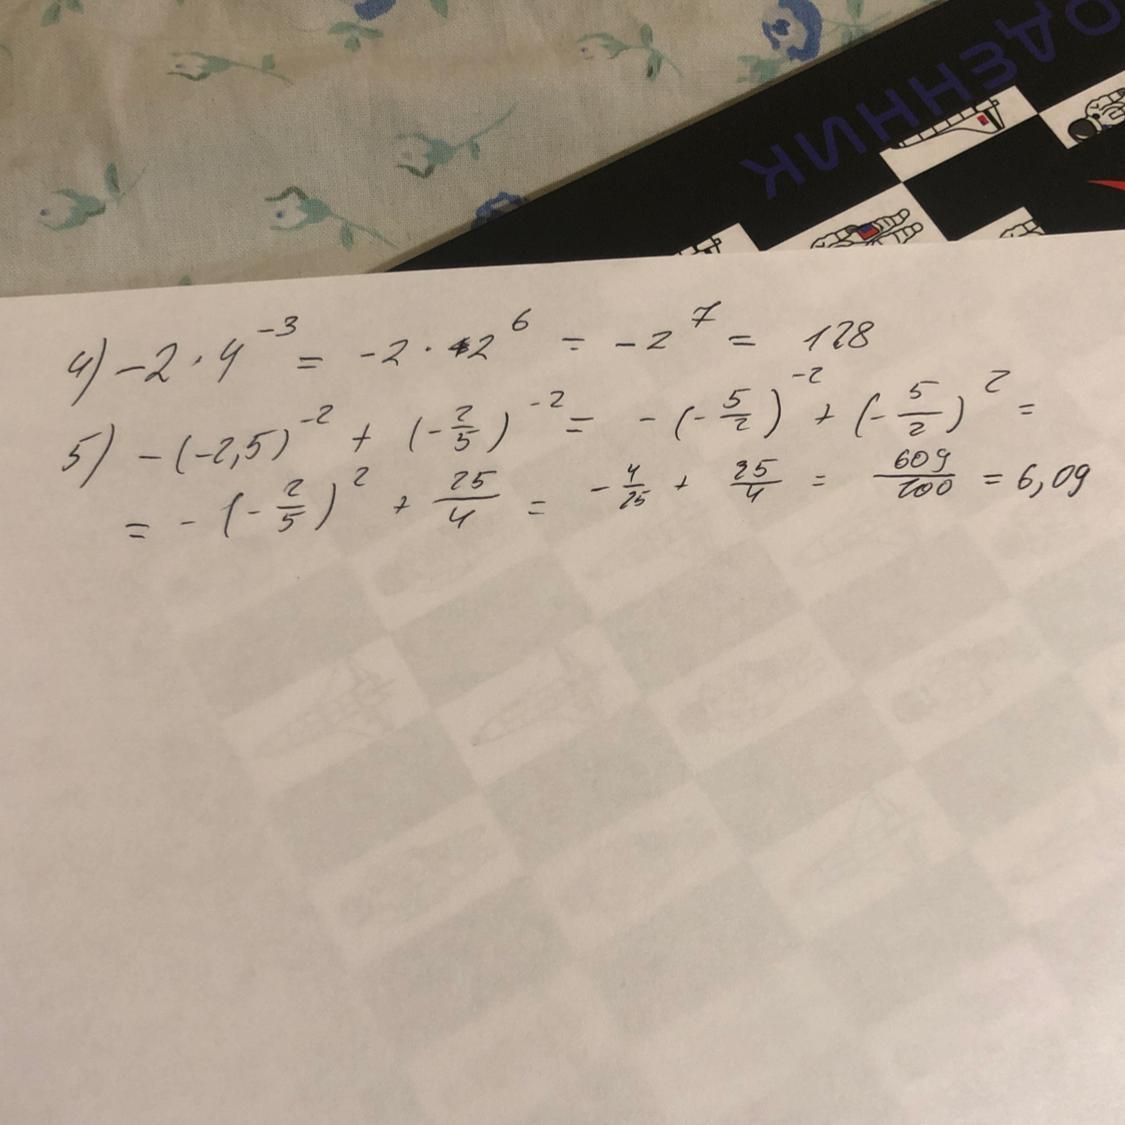 ОДЕННИК
4) -2 · 4^{-3} = -2 · 2^6 = -2^7 = 128
5) -(-2,5)^{-2} + (-\frac{2}{5})^{-2} = -(-\frac{5}{2})^{-2} + (-\frac{5}{2})^2 =
= -(-\frac{2}{5})^2 + \frac{25}{4} = -\frac{4}{25} + \frac{25}{4} = \frac{609}{100} = 6,09